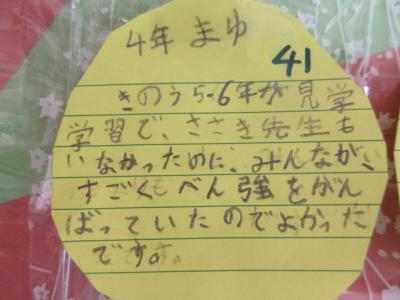 4年 まゆ
41
きのう5-6年が見学
学習で、ささき先生も
いなかったのに、みんなが、
すごくべん強をがん
ばっていたのでよかった
です。